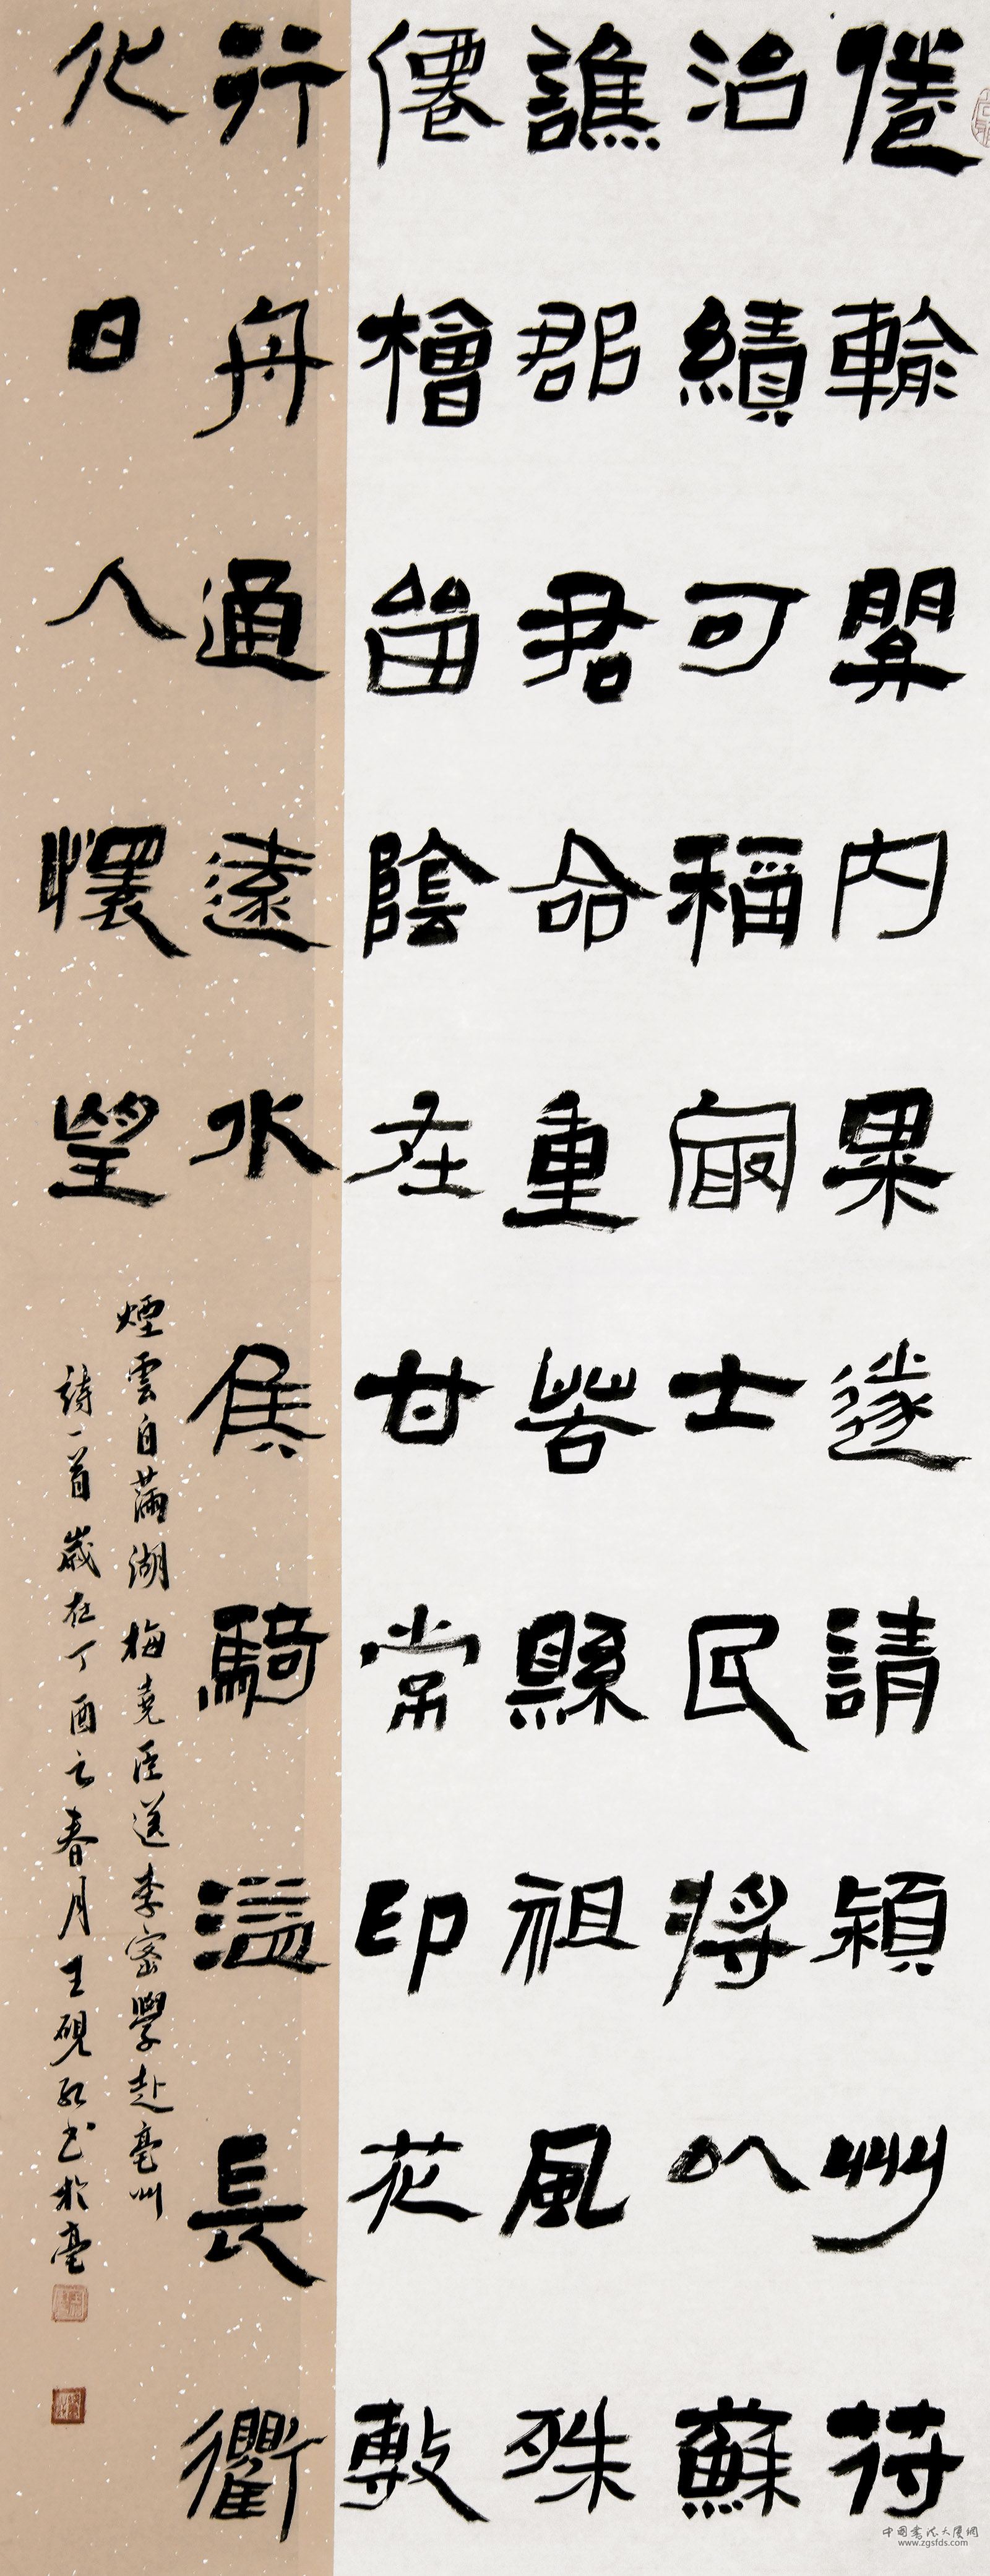 倦輸関內粟遂請潁州符
治績可稱冣士民將以蘇
譙郡君命重苦縣祖風殊
僊檜畱陰在甘常印花敷
行舟通遠水候騎溢長衢
化日人懷望
煙雲自滿湖梅堯臣送李密學赴亳州
詩一首歲在丁酉之春月王硯书於亳
中国書法大厦網
www.zgsfds.com